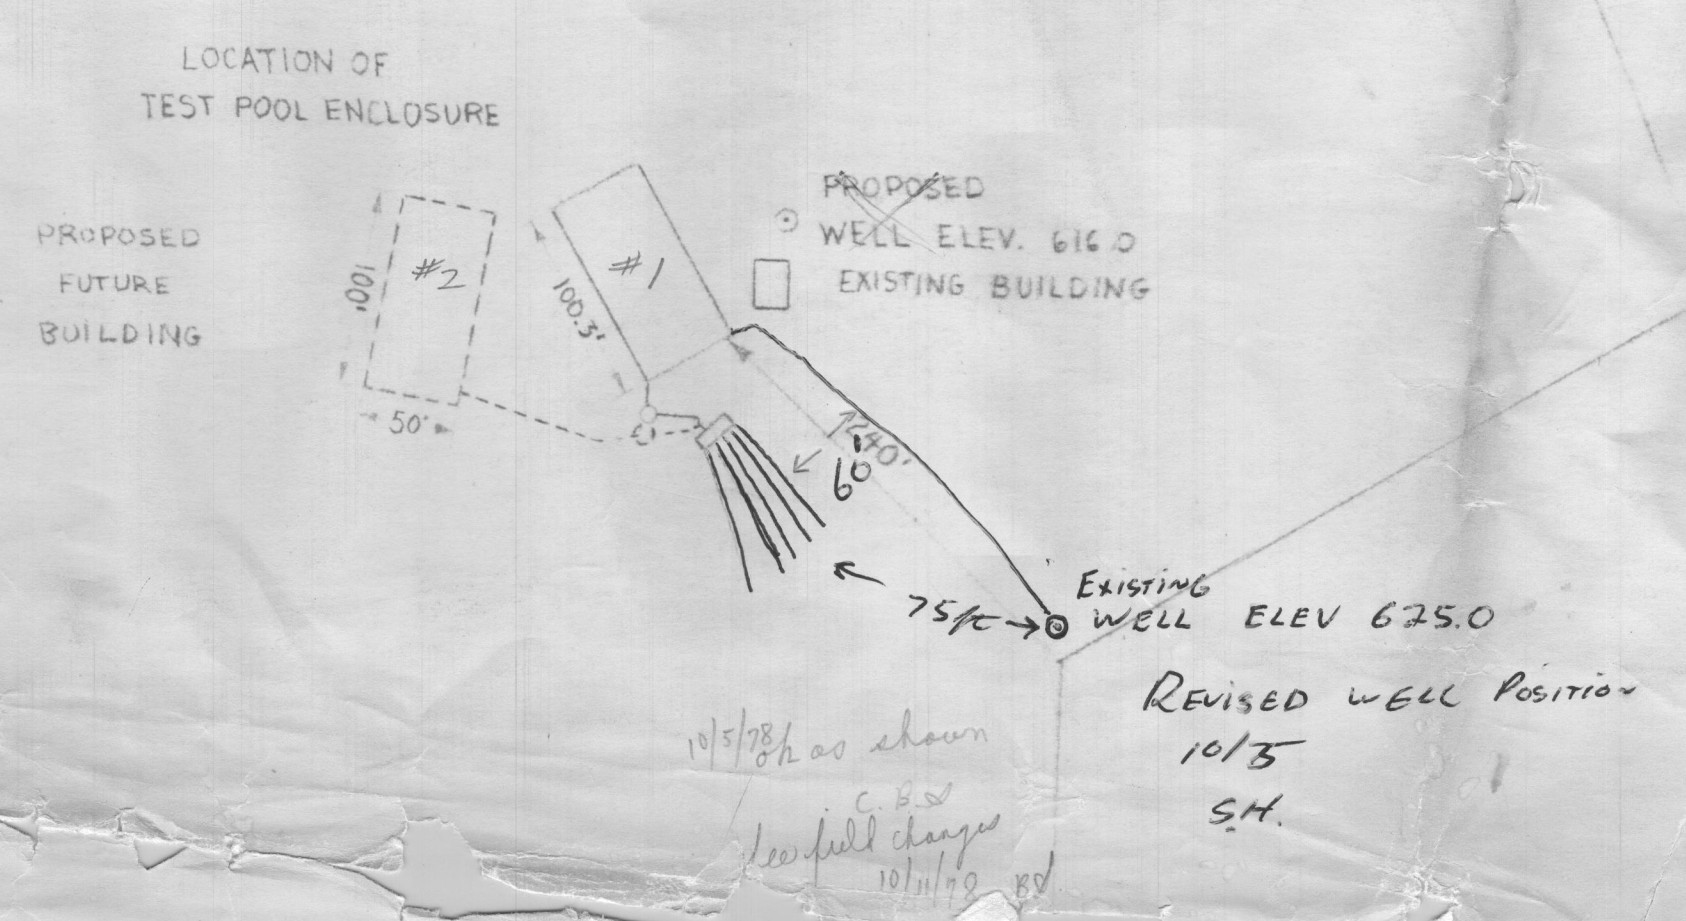 LOCATION OF
TEST POOL ENCLOSURE
PROPOSED
FUTURE
BUILDING
100'
#2
50'
#1
100.3'
PROPOSED
WELL ELEV. 616.0
EXISTING BUILDING
240'
60'
75 ft
EXISTING
WELL ELEV 625.0
REVISED WELL POSITION
10/5
S.H.
10/5/78 ok as shown
C. B.
See field changes
10/11/78